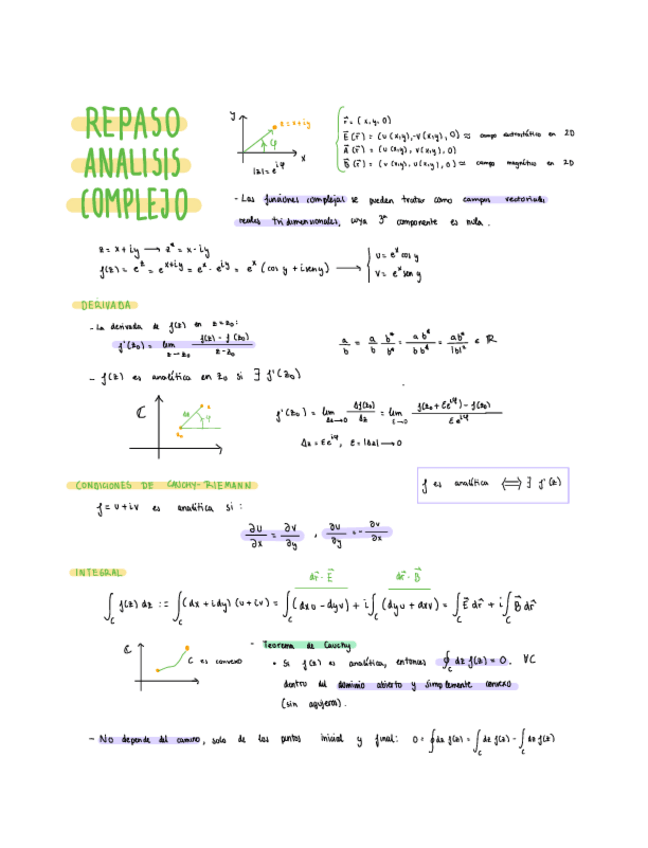 REPASO
ANALISIS
COMPLEJO
y
z = x+iy
φ
x
|z| = e^{iφ}
r⃗ = (x, y, 0)
E⃗(r⃗) = (u(x,y), -v(x,y), 0) ≈ campo electrostático en 2D
A⃗(r⃗) = (u(x,y), v(x,y), 0)
B⃗(r⃗) = (v(x,y), u(x,y), 0) ≈ campo magnético en 2D
- Las funciones complejas se pueden tratar como campos vectoriales
reales tridimensionales, cuya 3ª componente es nula.
z = x+iy → z* = x-iy
f(z) = e^z = e^{x+iy} = e^x · e^{iy} = e^x (cos y + i sen y) → u = e^x cos y
v = e^x sen y
DERIVADA
- La derivada de f(z) en z=z₀:
f'(z₀) = lim_{z→z₀} (f(z) - f(z₀))/(z - z₀)
a/b = a/b b*/b* = ab*/bb* = ab*/|b|² ∈ ℝ
- f(z) es analítica en z₀ si ∃ f'(z₀)
ℂ
z
Δz
φ
z₀
f'(z₀) = lim_{Δz→0} Δf(z₀)/Δz = lim_{ε→0} (f(z₀ + εe^{iφ}) - f(z₀))/(εe^{iφ})
Δz = εe^{iφ}, ε = |Δz| → 0
CONDICIONES DE CAUCHY-RIEMANN
f es analítica ⟺ ∃ f'(z)
f = u+iv es analítica si :
∂u/∂x = ∂v/∂y , ∂u/∂y = - ∂v/∂x
INTEGRAL
dr⃗ · E⃗
dr⃗ · B⃗
∫_C f(z) dz := ∫_C (dx + idy)(u + iv) = ∫_C (dxu - dyv) + i∫_C (dyu + dxv) = ∫_C E⃗ dr⃗ + i∫_C B⃗ dr⃗
ℂ
C es convexo
- Teorema de Cauchy
• Si f(z) es analítica, entonces ∮_C dz f(z) = 0. ∀C
dentro del dominio abierto y simplemente convexo
(sin agujeros).
- No depende del camino, solo de los puntos inicial y final: 0 = ∮dz f(z) = ∫_C dz f(z) - ∫_C dz f(z)